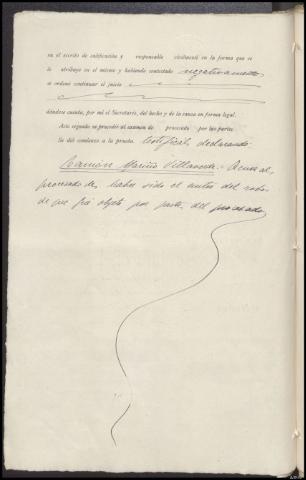 en el escrito de calificación y responsable civilmente en la forma que se
le atribuye en el mismo y habiendo contestado negativamente
se ordenó continuar el juicio
dándose cuenta, por mí el Secretario, del hecho y de la causa en forma legal.
Acto seguido se procedió al examen de procesado por las partes.
Se dió comienzo a la prueba. testifical, declarando
Ramón Mariño Villaverde.- Acusa al
procesado de haber sido el autor del robo
de que fué objeto por parte del procesado